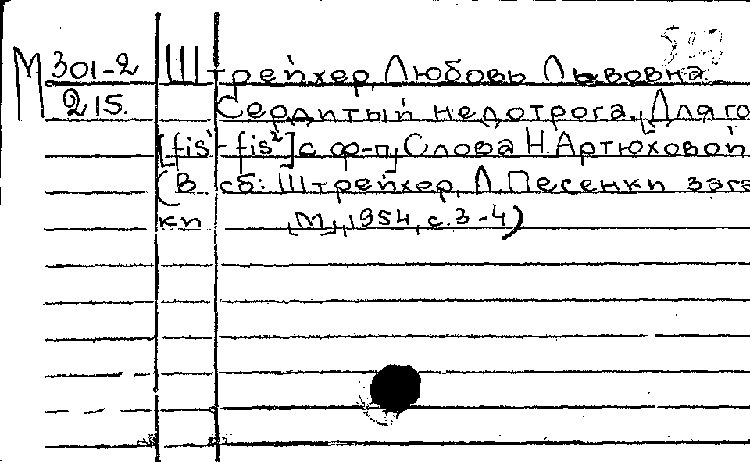 М 301-2 Штрейхер, Любовь Львовна.
215. Сердитый недотрога. Для го
[fis¹-fis²] с ф-п. Слова Н. Артюховой
(В сб: Штрейхер, Л. Песенки зага
ки М., 1954, с. 3-4)